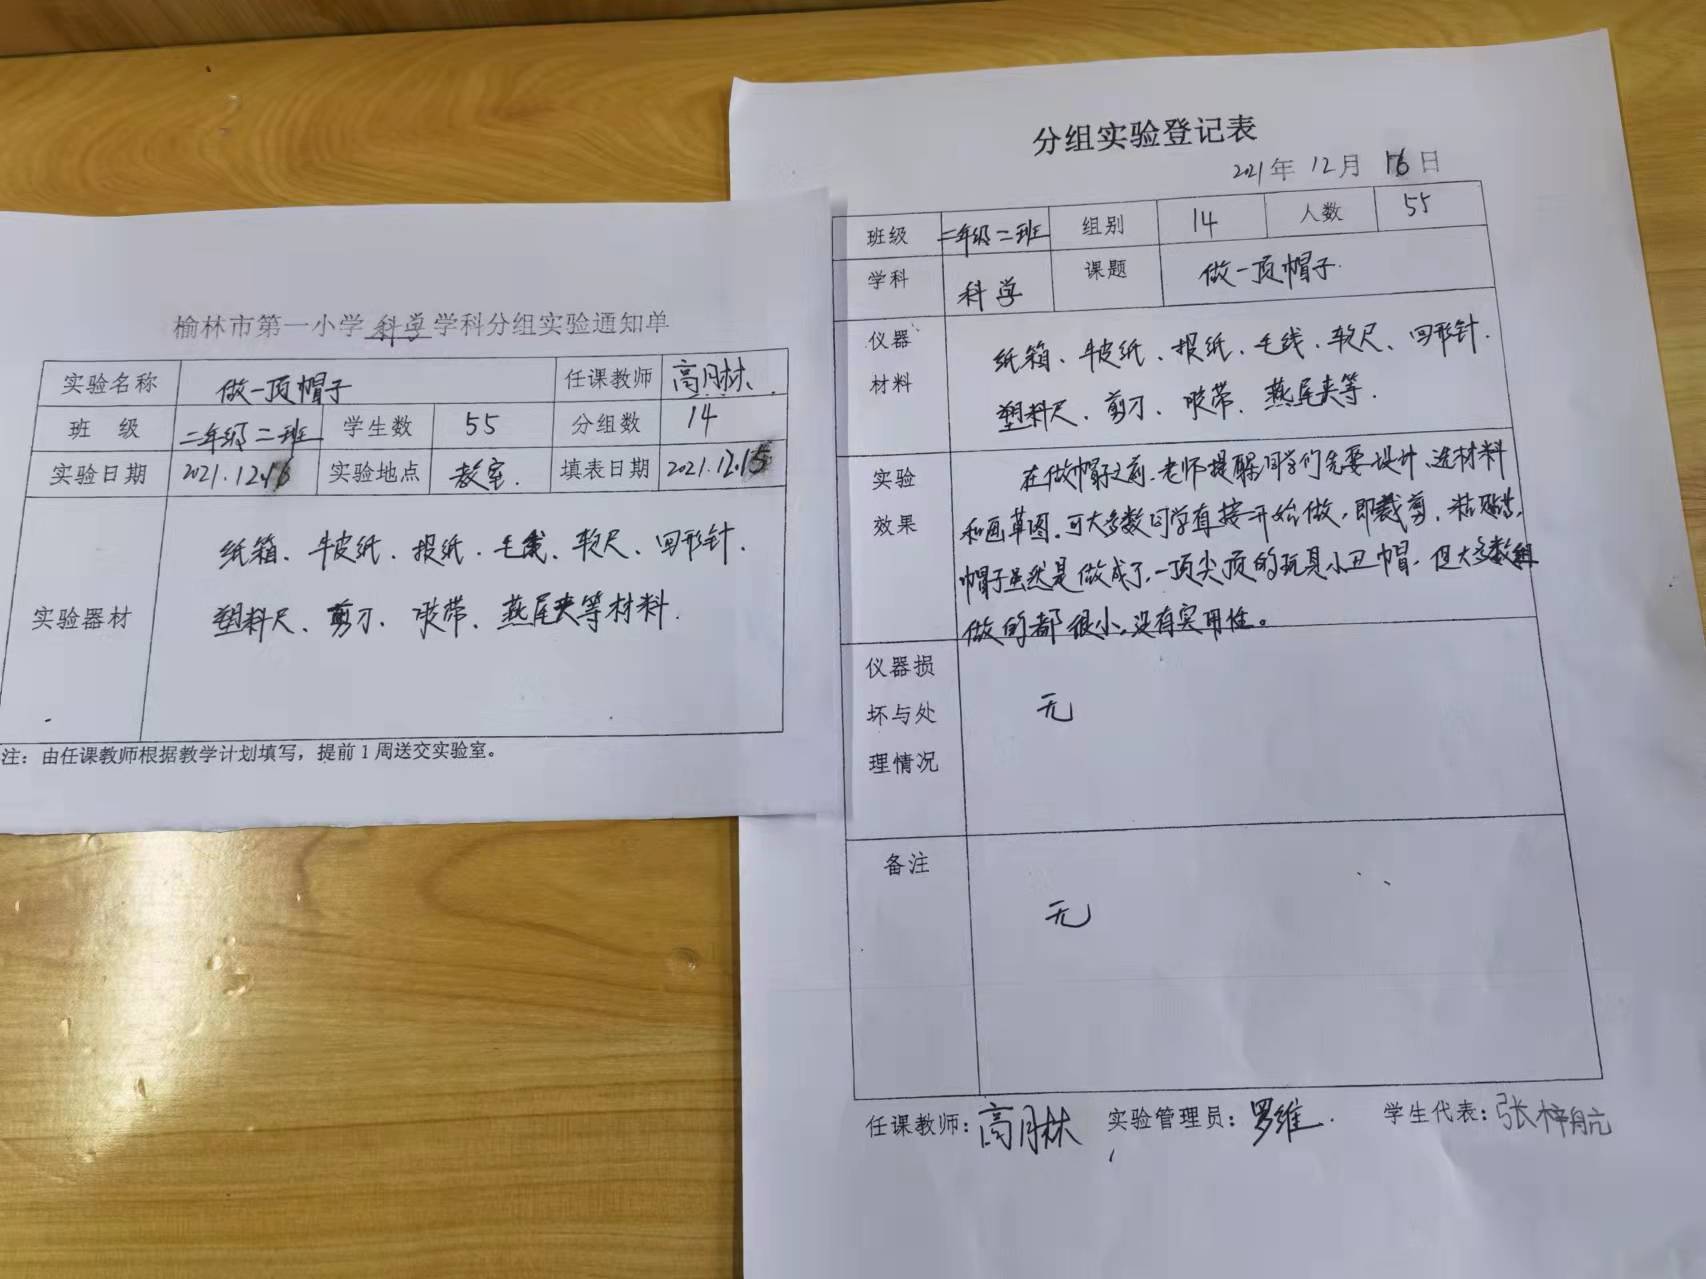 榆林市第一小学科学学科分组实验通知单
实验名称 做一顶帽子 任课教师 高月林
班 级 二年级二班 学生数 55 分组数 14
实验日期 2021.12.16 实验地点 教室. 填表日期 2021.12.15
实验器材
纸箱、牛皮纸、报纸、毛线、软尺、回形针、
塑料尺、剪刀、胶带、燕尾夹等材料.
注：由任课教师根据教学计划填写，提前1周送交实验室。
分组实验登记表
2021年 12月 16日
班级 二年级二班 组别 14 人数 55
学科 科学 课题 做一顶帽子.
仪器材料
纸箱、牛皮纸、报纸、毛线、软尺、回形针.
塑料尺、剪刀、胶带、燕尾夹等.
实验效果
在做帽子之前、老师提醒同学们先要设计、选材料
和画草图，可大多数同学直接开始做，即裁剪、粘贴，
帽子虽然是做成了，一顶尖顶的玩具小丑帽，但大多数组
做的都很小，没有实用性。
仪器损坏与处理情况
无
备注
无
任课教师：高月林 实验管理员：罗维. 学生代表：张梓航